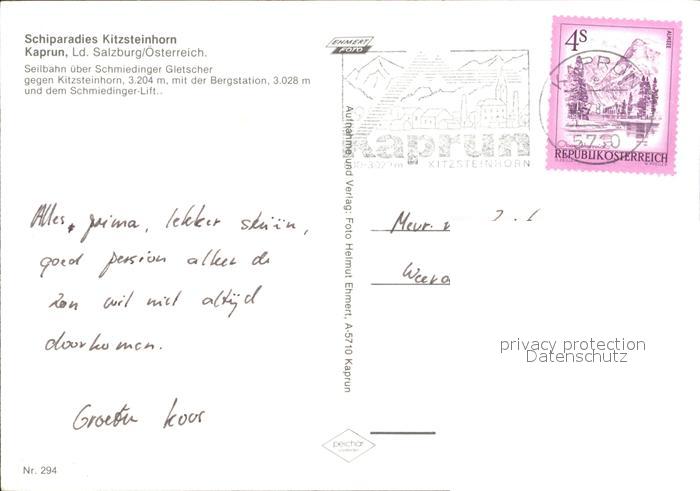 Schiparadies Kitzsteinhorn
Kaprun, Ld. Salzburg/Österreich.
Seilbahn über Schmiedinger Gletscher
gegen Kitzsteinhorn, 3.204 m, mit der Bergstation, 3.028 m
und dem Schmiedinger-Lift..
EHMERT
FOTO
kaprun
KITZSTEINHORN
4S
ALMSEE
KAPRUN
5710
REPUBLIK ÖSTERREICH
Alles, prima, lekker skiën,
goed pension alleen de
zon wil niet altijd
doorkomen.
Groeten Koos
Aufnahme und Verlag: Foto Helmut Ehmert, A-5710 Kaprun
Mevr.
privacy protection
Datenschutz
Nr. 294